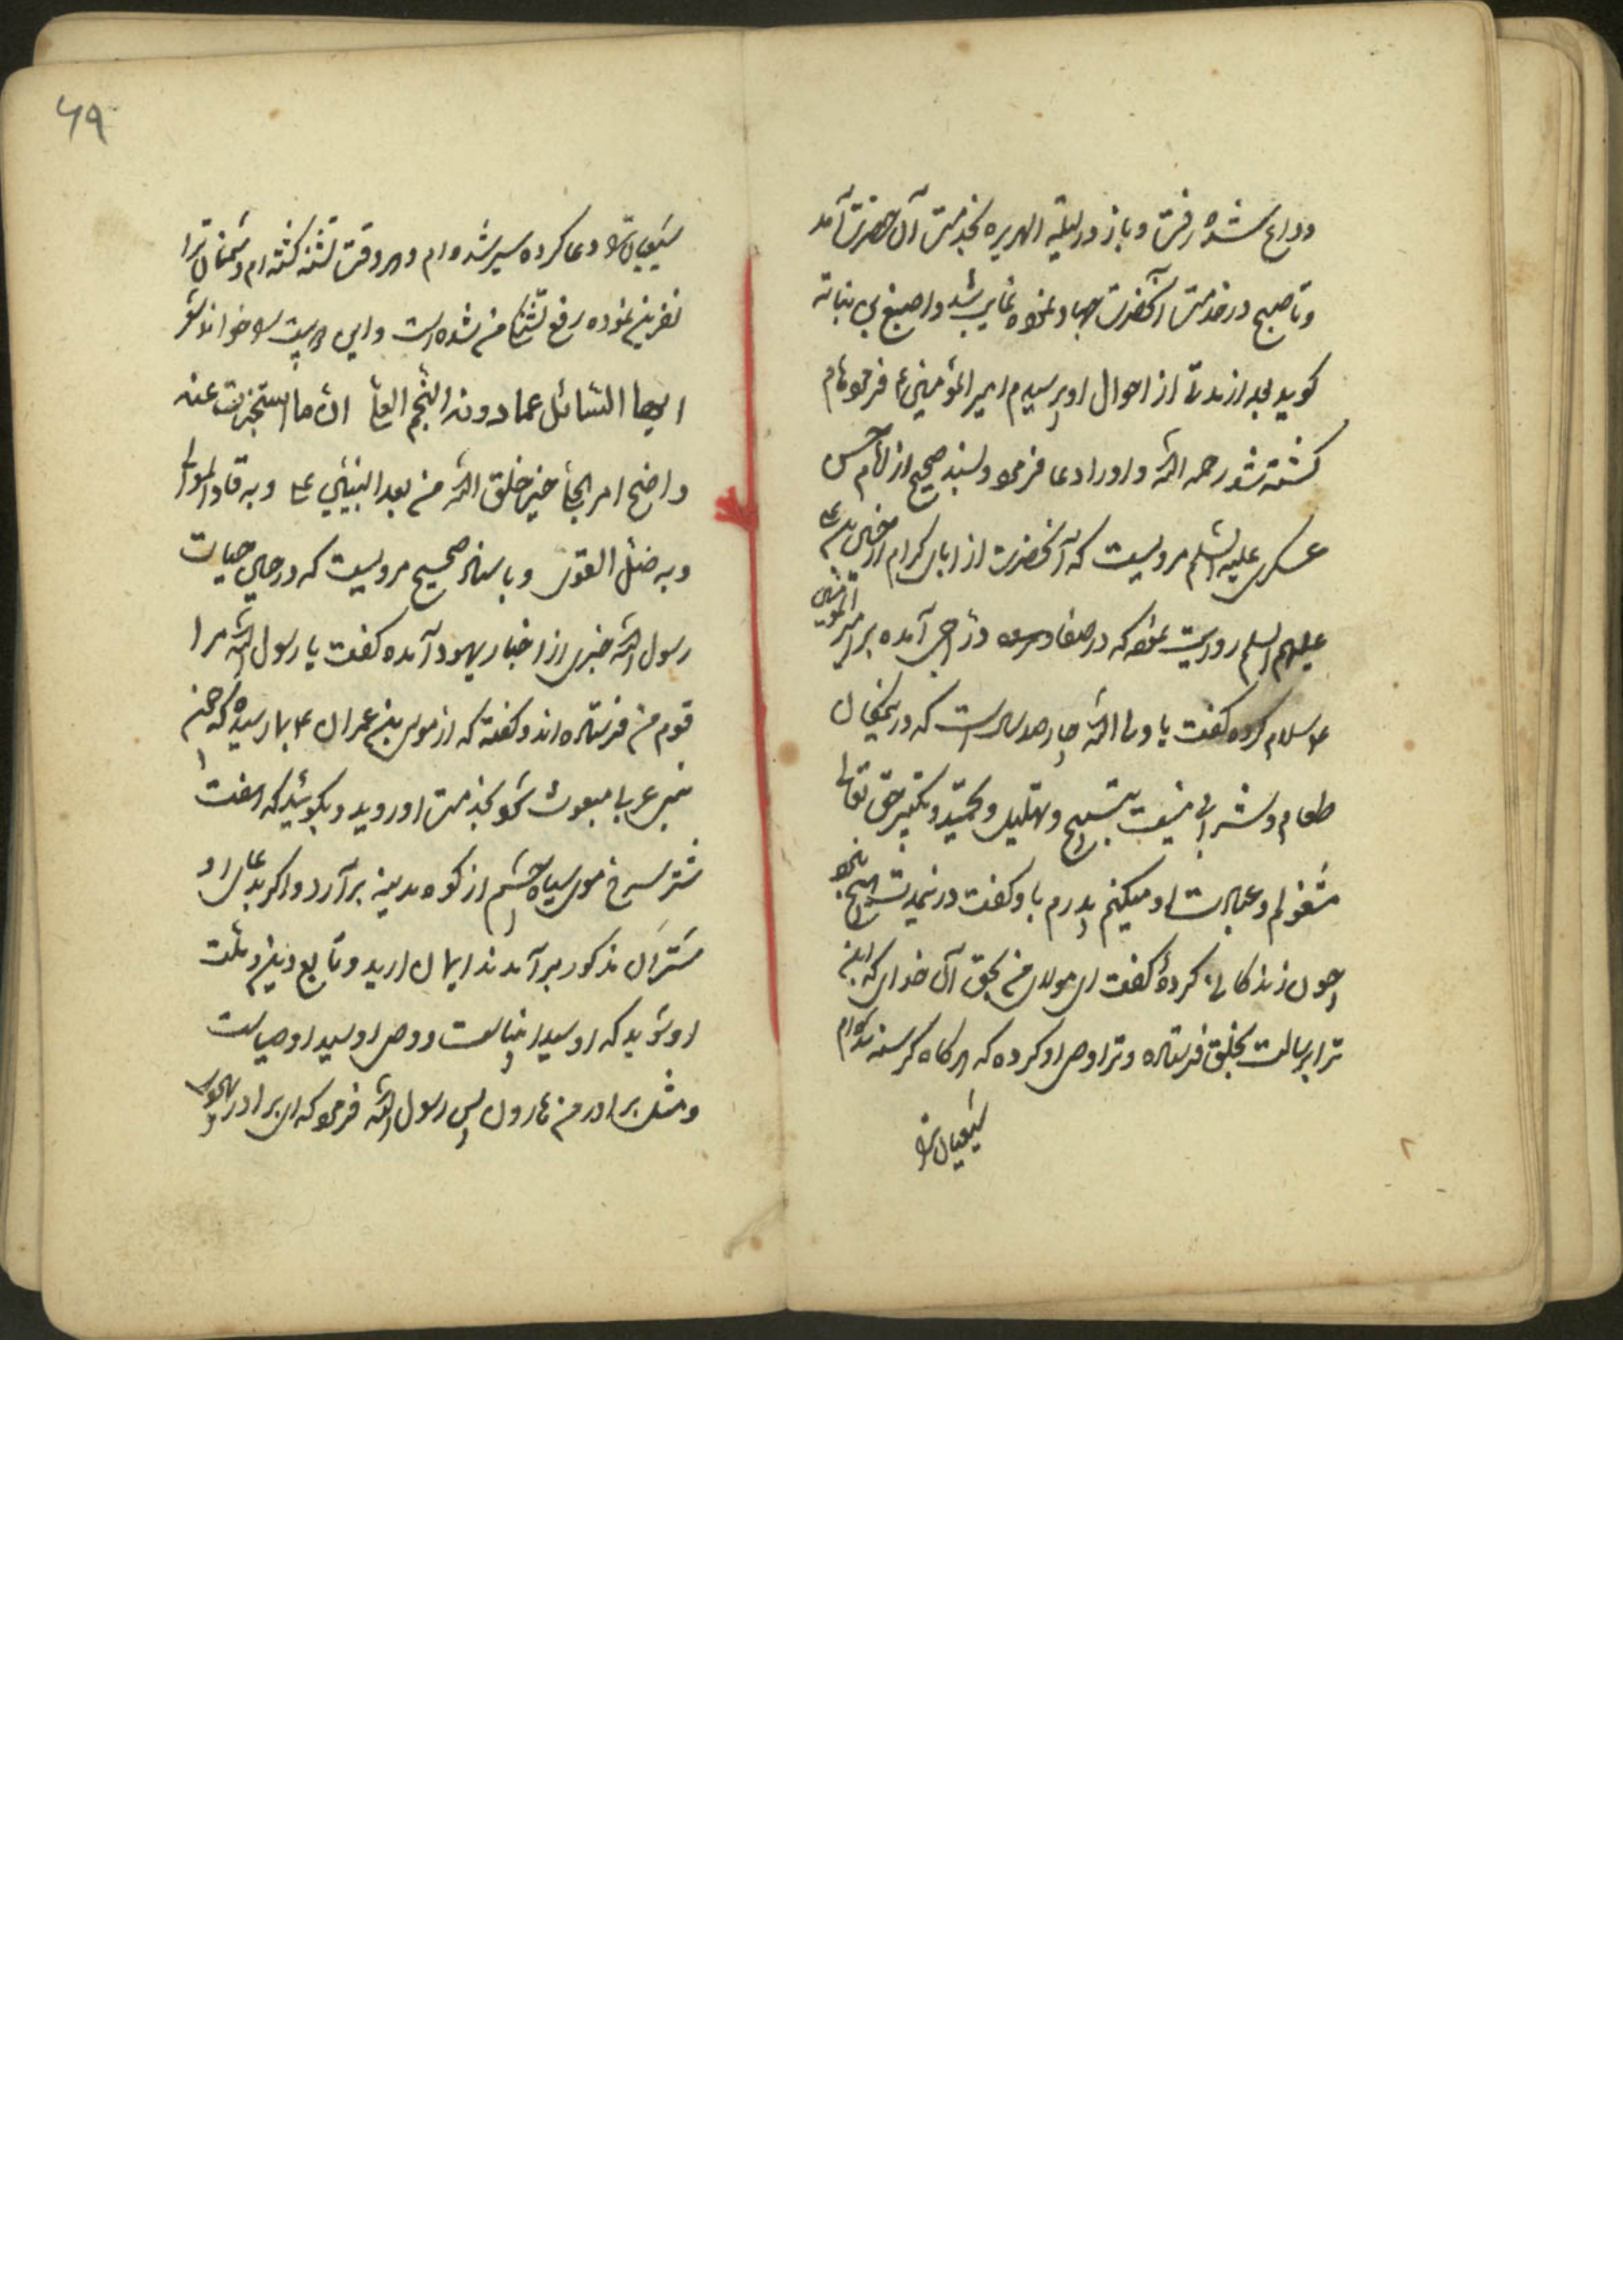 وداع شده رفت و باز در لیلة الهریره بخدمت آن حضرت آمد
و تا صبح در خدمت آنحضرت جهاد نموه غایب شد و اصبغ بن نباته
کوید بعد از مدتی از احوال او پرسیدم امیر المؤمنین ع فرموهام
کشته شد رحمه الله و اورا دعا فرموه و بسند صحیح از امام حسن
عسکری علیه السلم مرویست که آنحضرت از ابای کرام
علیهم السلم روایت نموه که در صفا دراجی آمده بر امیر المؤمنین
ع سلام کرده کفت یا ولی الله چارصد سالست که در اینمکان
طعام و شرابی نیست بتسبیح و تهلیل و تحمید و تکبیر حق تعالی
مشغولم و عبادت او میکنیم پدرم باو کفت در نیمدت
چون زندکانی کردهٔ کفت ای مولای من بحق آن خدای که ابن
ترا برسالت بخلق فرستاده و ترا وصی او کرده که هرکاه کرسنه شده‌ام
شیعیان ترا
۶۹
شیعیان ترا دعا کرده سیر شده‌ام و هر وقت تشنه کشته‌ام دشمنان ترا
نفرین نموده رفع تشنکی من شده است و این دو بیت را خواند شعر
ایها السائل عما دونه النجم العلی ان ما استخبرت عنه
واضح امر الجلی خیر خلق الله من بعد النبیین علی و به فاز الموالی
و به ضل القوی و باسناد صحیح مرویست که در حین حیات
رسول الله حبری از احبار یهود آمده کفت یا رسول الله مرا
قوم من فرستاده‌اند و کفته که از موسی بن عمران ع بما رسیده که چون
پیغمبر عربی مبعوث شود بخدمت او روید و بکوئید که هفت
شتر سرخ موی سیاه چشم از کوه مدینه برآرد و اکر بدعای او
شتران مذکور برآمدند ایمان ارید و تابع دین و ملت
او شوید که او سید انبیاست و وصی او سید اوصیاست
و مثل برادر من هارون پس رسول الله فرموه که ای برادر یهودی